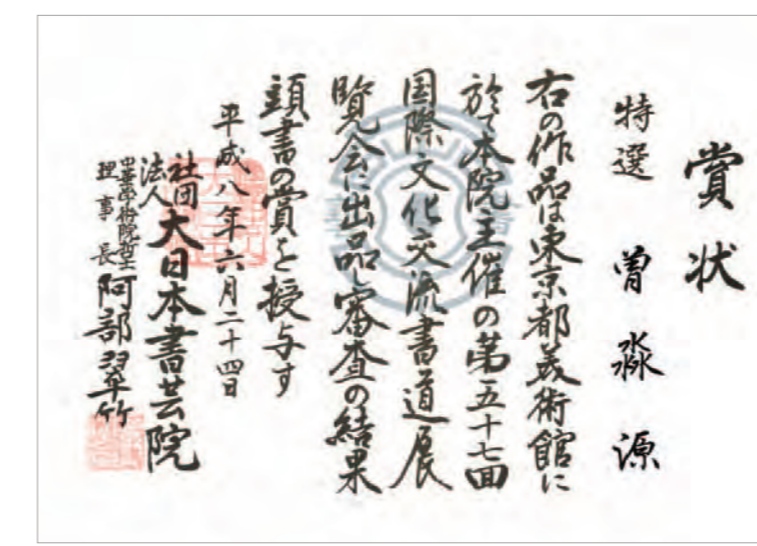 賞状
特選 曽淼源
右の作品は東京都美術館に
於て本院主催の第五十七回
国際文化交流書道展
覧会に出品し審査の結果
頭書の賞を授与す
平成八年六月二十四日
社団法人 大日本書芸院
中華学術院哲士
理事長 阿部翠竹